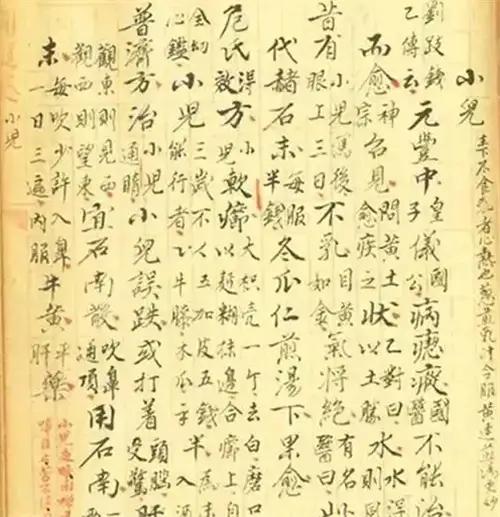 小兒
劉跂錢乙傳云元豐中皇子儀國公病瘛瘲國醫不能治
而愈神宗召見問黃土愈疾之狀乙對曰以土勝水水得則風
昔有小兒瀉後眼上三日不乳目黃如金氣將絕有名醫曰此
代赭石末每服半錢冬瓜仁煎湯下果愈
危氏得效方小兒軟癤大枳壳一个去白磨口以麵糊抹邊合癤上自
全幼心鑑小兒三歲不能行者以五加皮五錢牛膝木瓜二錢半為末入酒
普濟方治小兒通睛小兒誤跌或打着頭腦受驚肝
觀東則見西觀西則望東宜石南散吹鼻通頂用石南一
末每吹少許入鼻一日三遍內服牛黃平肝藥
小兒